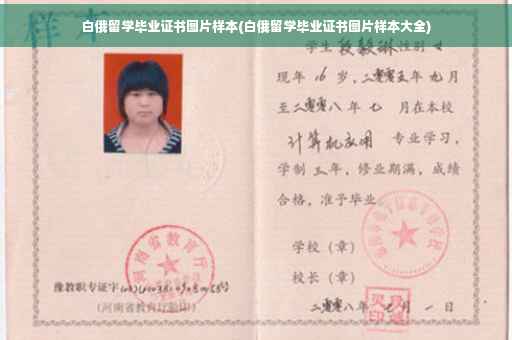 白俄留学毕业证书图片样本(白俄留学毕业证书图片样本大全)
样本
学生段毅琳性别女
现年16岁，二零零五年九月
至二零零八年七月在本校
计算机应用 专业学习，
学制三年，修业期满，成绩
合格，准予毕业。
学校（章）
校长（章）
二零零八年七月一日
河南省教育厅
豫教职专证字
(河南省教育厅验印)